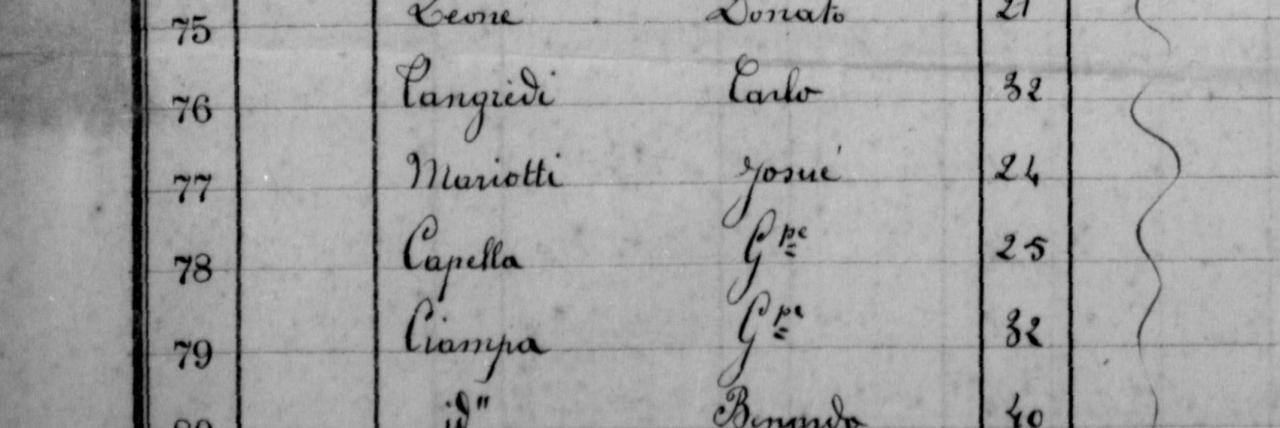 75 Leone Donato 21
76 Tangredi Carlo 32
77 Mariotti Josué 24
78 Capella Gpe 25
79 Ciampa Gpe 32
80 id" 40